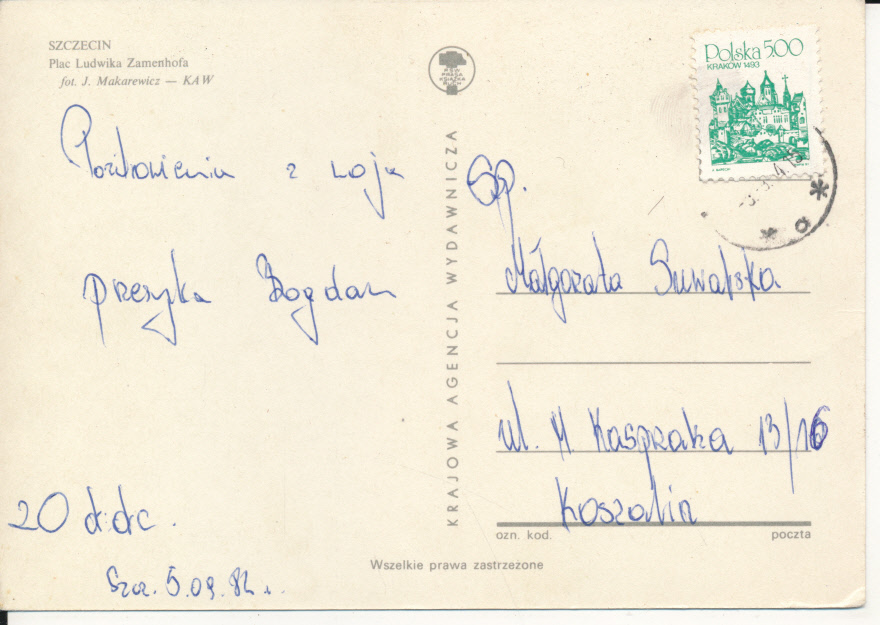 SZCZECIN
Plac Ludwika Zamenhofa
fot. J. Makarewicz — KAW
Pozdrowienia z woja
przesyła Bogdan
20 d:d:c.
Szcz. 5.09.82 r.
RSW
PRASA
KSIĄŻKA
RUCH
KRAJOWA AGENCJA WYDAWNICZA
Wszelkie prawa zastrzeżone
Polska 5.00
KRAKÓW 1493
Sz.P.
Małgorzata Suwalska
ul. M. Kasprzaka 13/16
Koszalin
ozn. kod. poczta